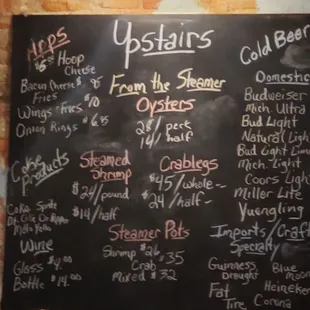 Upstairs
Apps
$5.95 Hoop
Cheese
Bacon Cheese $ 95
Fries
Wings + Fries $10
Onion Rings $6.95
Coke
Products
Coke Sprite
Dt. Coke Dr. Pepper
Mello Yello
Wine
Glass $4.00
Bottle $14.00
From the Steamer
Oysters
28/ peck
14/ half
Steamed
Shrimp
$24/pound
$14/half
Crablegs
$45/whole
$24/half
Steamer Pots
Shrimp $26
Crab 35
Mixed $32
Cold Beer
Domestic
Budweiser
Mich. Ultra
Bud Light
Natural Light
Bud Light Lime
Mich. Light
Coors Light
Miller Lite
Yuengling
Imports/Craft
Specialty
Guinness
Draught
Blue
Moon
Fat
Tire
Heineken
Corona